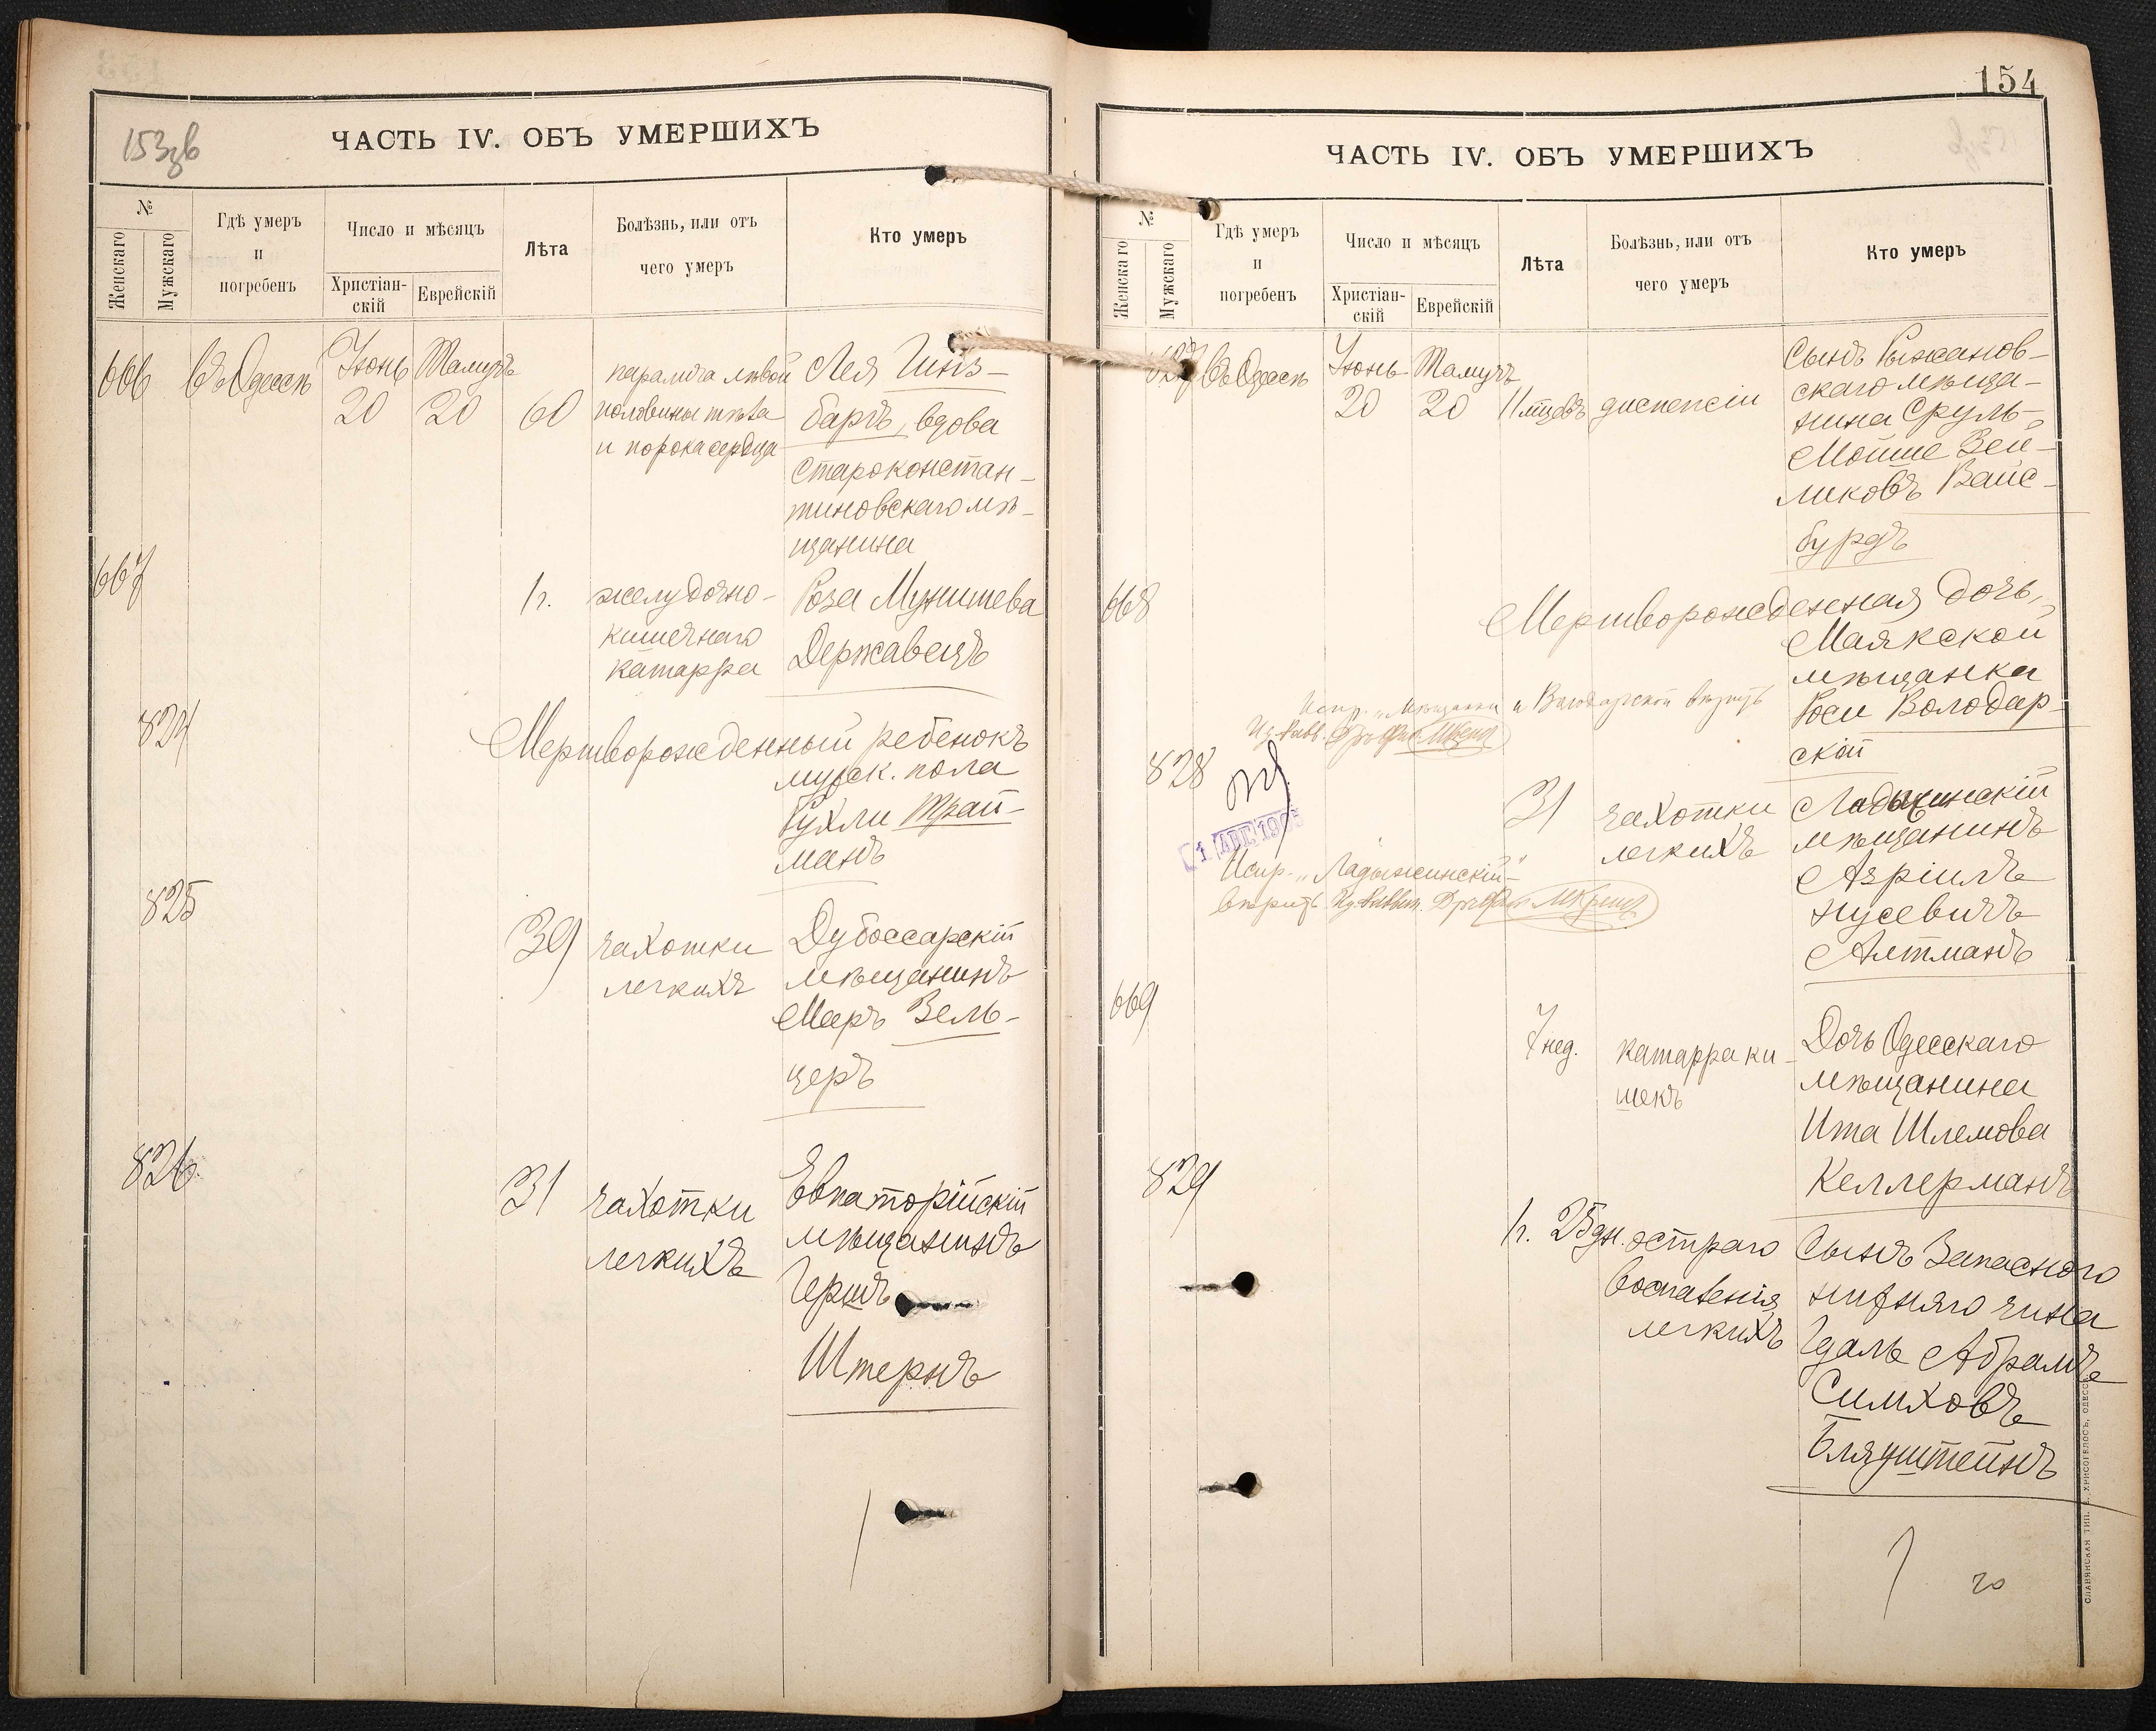 153зв
ЧАСТЬ IV. ОБЪ УМЕРШИХЪ
№
Женскаго
Мужскаго
Гдѣ умеръ
и
погребенъ
Число и мѣсяцъ
Христіан-
скій
Еврейскій
Лѣта
Болѣзнь, или отъ
чего умеръ
Кто умеръ
666 въ Одессѣ Іюнь Тамузъ
20 20 60
паралича лѣвой
половины тѣла
и порока сердца
Лея Гинз-
баръ, вдова
староконстан-
тиновскаго мѣ-
щанина
667
1 г. желудочно-
кишечнаго
катарра
Роза Мунишева
Державецъ
824
Мертворожденный ребенокъ
мужск. пола
Рухли Трай-
манъ
825
39 чахотки
легкихъ
Дубоссарскій
мѣщанинъ
Мееръ Зель-
церъ
826
31 чахотки
легкихъ
Евпаторійскій
мѣщанинъ
Гершъ
Штернъ
154
ЧАСТЬ IV. ОБЪ УМЕРШИХЪ
№
Женскаго
Мужскаго
Гдѣ умеръ
и
погребенъ
Число и мѣсяцъ
Христіан-
скій
Еврейскій
Лѣта
Болѣзнь, или отъ
чего умеръ
Кто умеръ
827 въ Одессѣ Іюнь Тамузъ
20 20 11 мцевъ диспепсіи
Сынъ Рыжанов-
скаго мѣща-
нина Сруль-
Мойше Зей-
ликовъ Вайс-
бурдъ
668
Мертворожденная дочь,
Маякской
мѣщанка
Роси Володар-
скій
Испр. „Мѣщанки и Володарской вѣрить
828
1 АВГ 1905
31 чахотки
легкихъ
Ладыжинскій
мѣщанинъ
Азріилъ
Нусевичъ
Алтманъ
Испр. „Ладыжинскій"
вѣрить
669
7 нед. катарра ки-
шекъ
Дочь Одесскаго
мѣщанина
Ита Шлемова
Келлерманъ
829
1 г. 25 дн. остраго
воспаленія
легкихъ
Сынъ Запаснаго
нижняго чина
Гдаль Абрамъ
Симховъ
Бляуштейнъ
20
СЛАВЯНСКАЯ ТИП. Е. ХРИСОГЕЛОСЪ, ОДЕССА